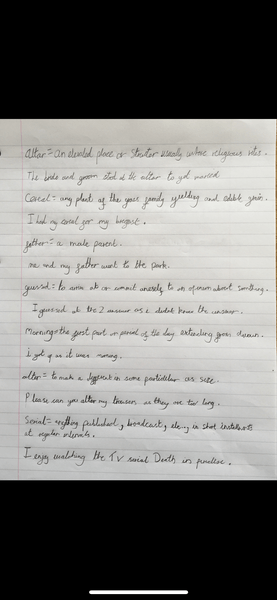 altar = an elevated place or structer usually where religious rites.
The bride and groom stood at the altar to get married
Cereal = any plant of the gras family yielding and edible grain.
I had my cereal for my brekfast.
father = a male parent.
me and my father went to the park.
guessed = to arrive at or commit anesely to an openion about somthing.
I guessed at the 2 answer as i didebt know the answer.
Morning = the first part or period of the day extending from dawn.
i got up as it was morning.
alter = to make a diffrent in some particular as size
Please can you alter my trousers as they are too long.
Serial = anything published, broadcast, etc, in short installments
at regular intervals.
I enjoy watching the TV serial Death in paradise.